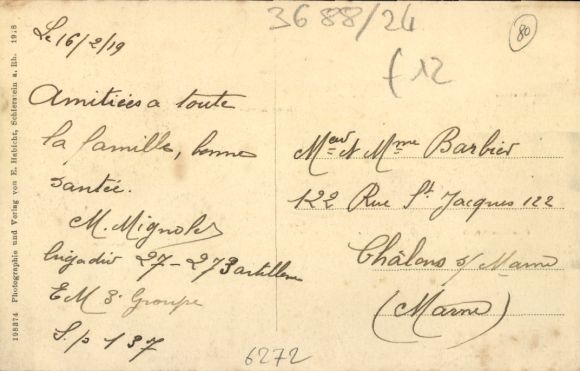 3688/24
80
f 12
Le 16/2/19
Amitiées a toute
la famille, bonne
santée.
M. Mignolet
brigadier 27-273 artillerie
E M 3e Groupe
S.p 137
Meur & Mme Barbier
122 Rue St Jacques 122
Châlons s/ Marne
(Marne)
6272
198374 Photographie und Verlag von E. Habicht, Schierstein a. Rh. 1918